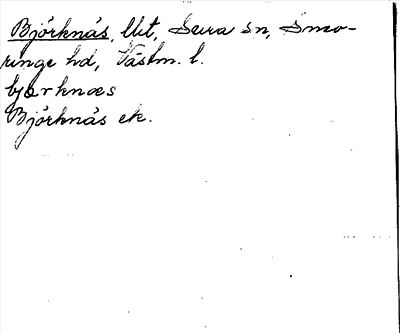 Björknäs, Utt, Sura sn, Snev-
ringe hd, Västm. l.
bjørknæs
Björknäs ek.